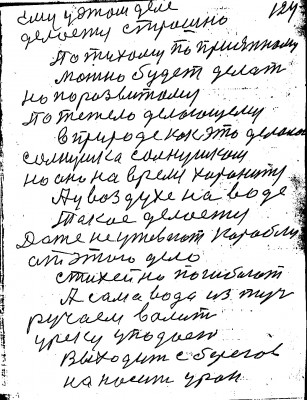 ему у этом деле 124
делоету страшно
По тихому то приятному
можно будет делат
но поразвитому
По тежело делоющему
в природе как это делоют
солнушка солнушком
но оно на время
А у воздухе на воде
такое делоету
Даже неутевают корабли
от этого дело
стихей но погибают
А сама вода из туч
ручаем валит
уреку упадает
выходит с берегов
наносит урон